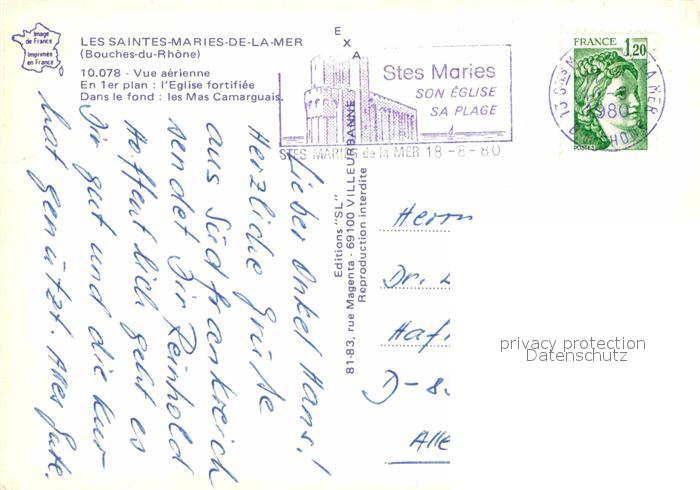 Image
de France
Imprimée
en France
LES SAINTES-MARIES-DE-LA-MER
(Bouches-du-Rhône)
10.078 - Vue aérienne
En 1er plan : l'Eglise fortifiée
Dans le fond : les Mas Camarguais.
EXA
Stes Maries
SON ÉGLISE
SA PLAGE
STES MARIES de la MER 18-8-80
FRANCE 1,20
POSTES
1980
Editions "SL"
81-83, rue Magenta - 69100 VILLEURBANNE
Reproduction interdite
Lieber Onkel Hans!
Herzliche Grüße
aus Südfrankreich
sendet Dir Reinhold
Hoffentlich geht es
Dir gut und die Kur
hat genützt. Alles Gute.
Herrn
Dr.
Haf
D-8
Alle
privacy protection
Datenschutz